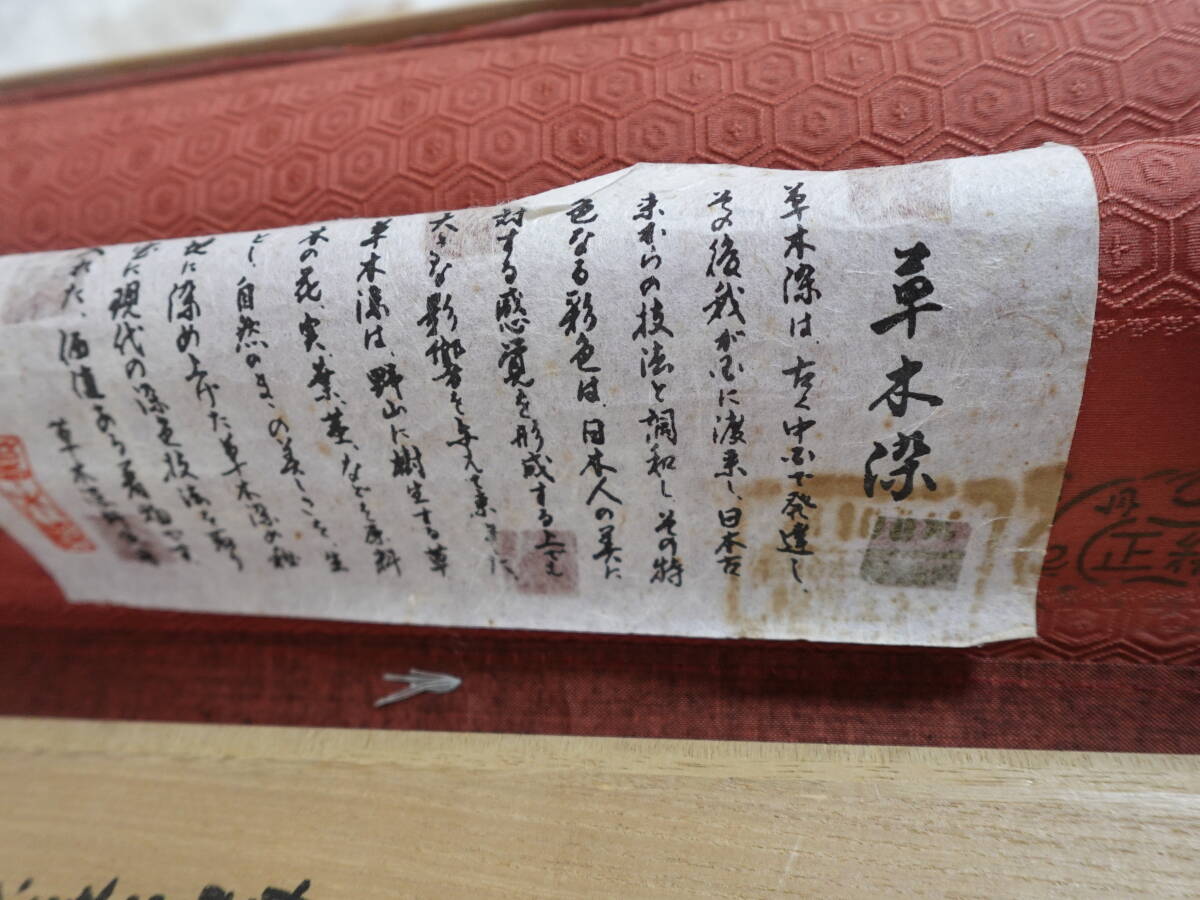 草木染
草木染は、古く中国で発達し、
その後我が国に渡来し、日本古
来からの技法と調和し、その特
色なる彩色は、日本人の美に
対する感覚を形成する上でも
大きな影響を与えて来ました
草木染は、野山に樹生する草
木の花、実、葉、茎、などを原料
とし、自然のまゝの美しさを、生
地に染め上げた草木染の
に現代の染色技法を
れた、価値ある着物です
草木染
正